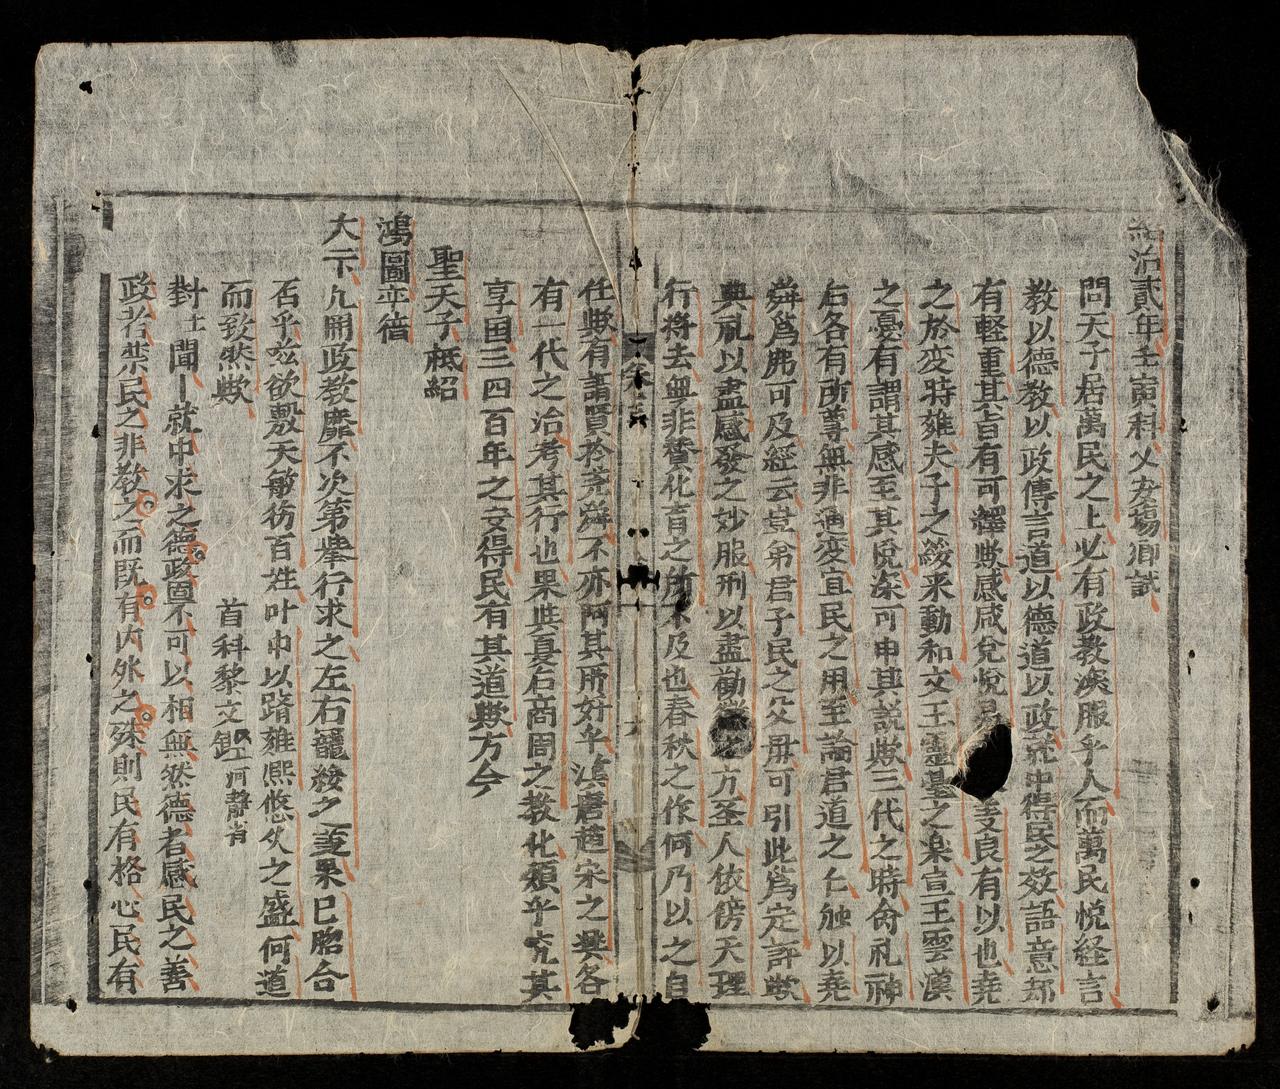 紹治貳年壬寅科乂安塲鄉試
問天子居萬民之上必有政教渙服乎人而萬民悅経言
教以德教以政傳言道以德道以政就中得民之效語意却
有軽重其旨有可繹歟感咸兌悅易 良有以也堯
之於变時雍夫子之綏来動和文王靈䑓之楽宣王雲漢
之憂有謂其感至其悅深可申其説歟三代之時侖礼神
右各有所尊無非通变宜民之用至論君道之仁触以堯
舜爲弗可及經云豈弟君子民之父毋可引此爲定評歟
典礼以盡感發之妙服刑以盡勸 乃圣人依傍天理
行将去無非賛化育之所不及也春秋之作何乃以之自
任歟有謂賢於堯舜不亦阿其所好乎漢唐趙宋之興各
有一代之治考其行也果與夏后商周之教化類乎究其
享国三四百年之文得民有其道歟方今
聖天子祗紹
鴻圖平猪
大下凢用政教靡不次第举行求之左右寵綏之 果已脗合
否乎玆欲敷天黎彷百姓叶中以躋雍熙悠久之盛何道
而致然歟
首科黎文 河静省
對士聞就中求之德政固不可以相無然德者感民之善
政者禁民之非教之而既有内外之殊則民有格心民有